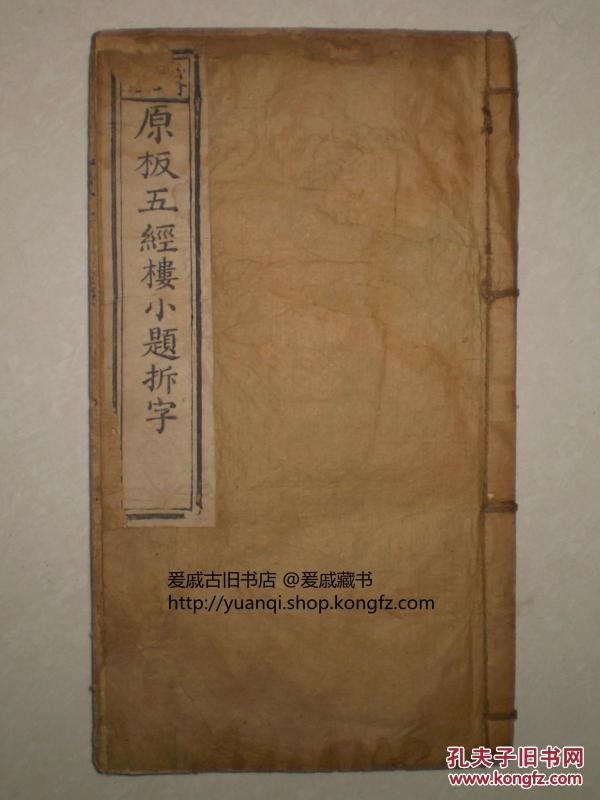 原板五經樓小題拆字
爱戚古旧书店 @爱戚藏书
http://yuanqi.shop.kongfz.com
孔夫子旧书网
www.kongfz.com